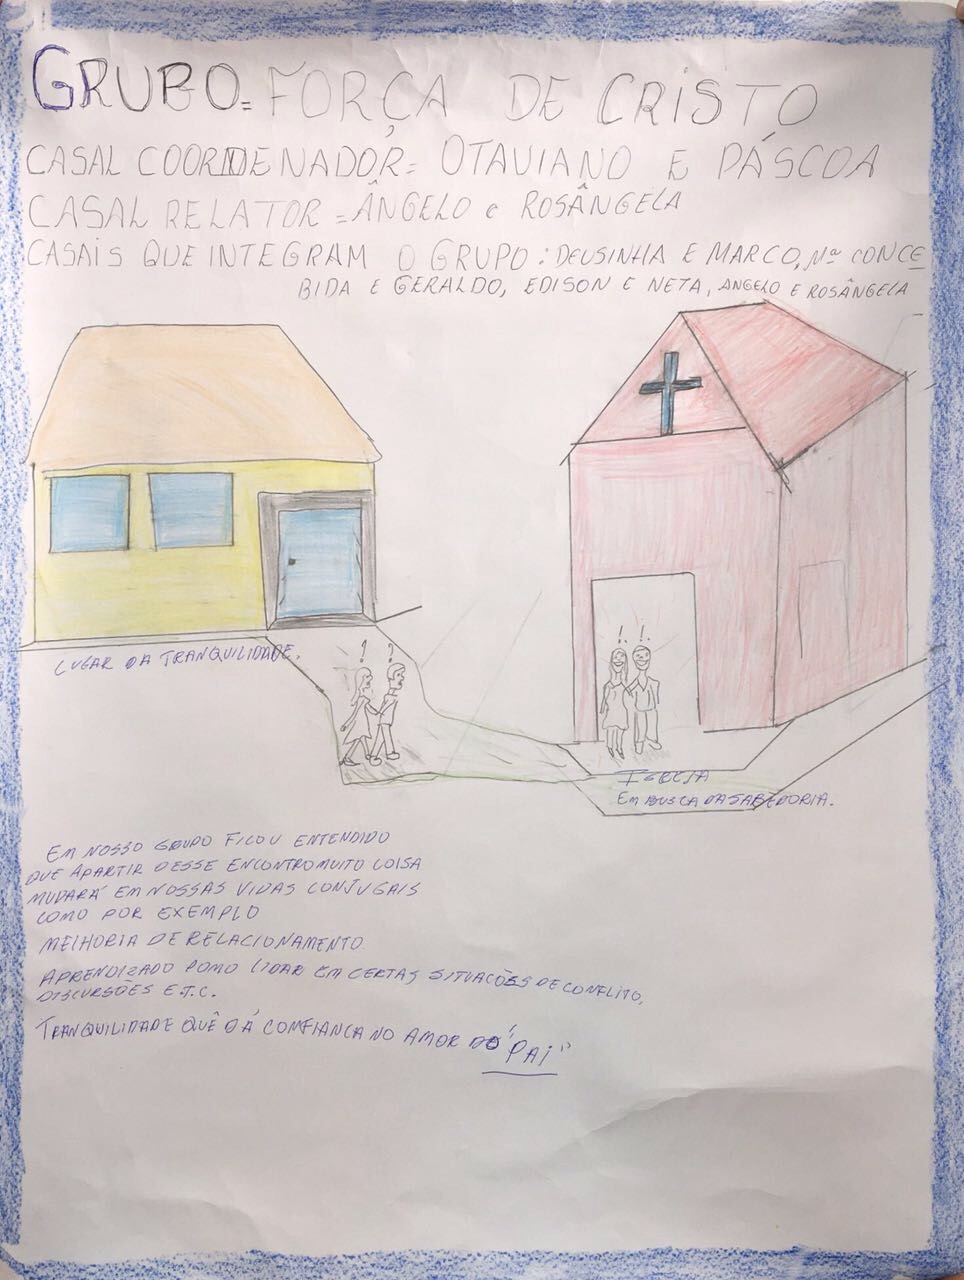 GRUPO = FORÇA DE CRISTO
CASAL COORDENADOR = OTAVIANO E PÁSCOA
CASAL RELATOR = ÂNGELO e ROSÂNGELA
CASAIS QUE INTEGRAM O GRUPO : DEUSINHA E MARCO, Mª CONCE
BIDA E GERALDO, EDISON E NETA, ANGELO E ROSÂNGELA
LUGAR DA TRANQUILIDADE.
? ?
! !
IGREJA
EM BUSCA DA SABEDORIA.
EM NOSSO GRUPO FICOU ENTENDIDO
QUE APARTIR DESSE ENCONTRO MUITO COISA
MUDARÁ EM NOSSAS VIDAS CONJUGAIS
COMO POR EXEMPLO
MELHORIA DE RELACIONAMENTO
APRENDIZADO LIDAR EM CERTAS SITUACÕES DE CONFLITO,
DISCURSÕES E.T.C.
TRANQUILIDADE QUÊ DÁ CONFIANCA NO AMOR DO "PAI"